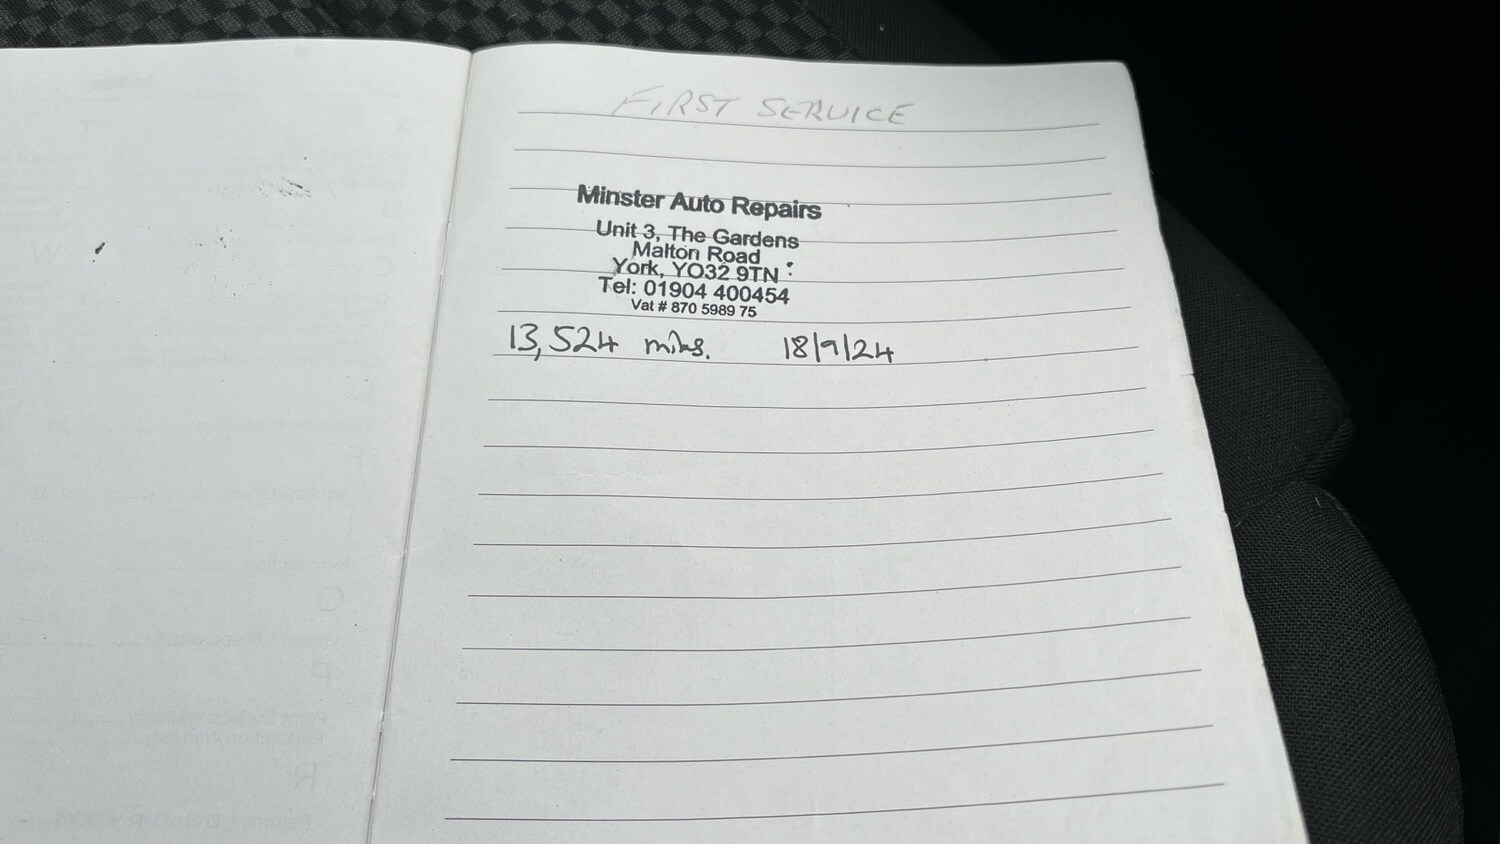 FIRST SERVICE
Minster Auto Repairs
Unit 3, The Gardens
Malton Road
York, YO32 9TN
Tel: 01904 400454
Vat # 870 5989 75
13,524 miles. 18/9/24